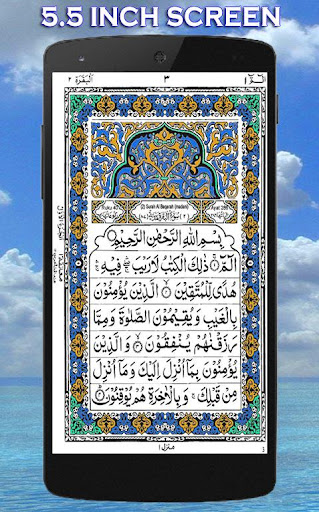 5.5 INCH SCREEN
البقرة ٢
٣
الٓمّٓ ١
(2) Surah Al Baqarah (madani)
بِسْمِ اللّٰهِ الرَّحْمٰنِ الرَّحِيْمِ
الٓمّٓ ۚ ذٰلِكَ الْكِتٰبُ لَا رَيْبَ ۛ فِيْهِ ۛ
هُدًى لِّلْمُتَّقِيْنَ ۙ الَّذِيْنَ يُؤْمِنُوْنَ
بِالْغَيْبِ وَيُقِيْمُوْنَ الصَّلٰوةَ وَمِمَّا
رَزَقْنٰهُمْ يُنْفِقُوْنَ ۙ وَالَّذِيْنَ
يُؤْمِنُوْنَ بِمَآ اُنْزِلَ اِلَيْكَ وَمَآ اُنْزِلَ
مِنْ قَبْلِكَ ۚ وَبِالْاٰخِرَةِ هُمْ يُوْقِنُوْنَ
منزل ١